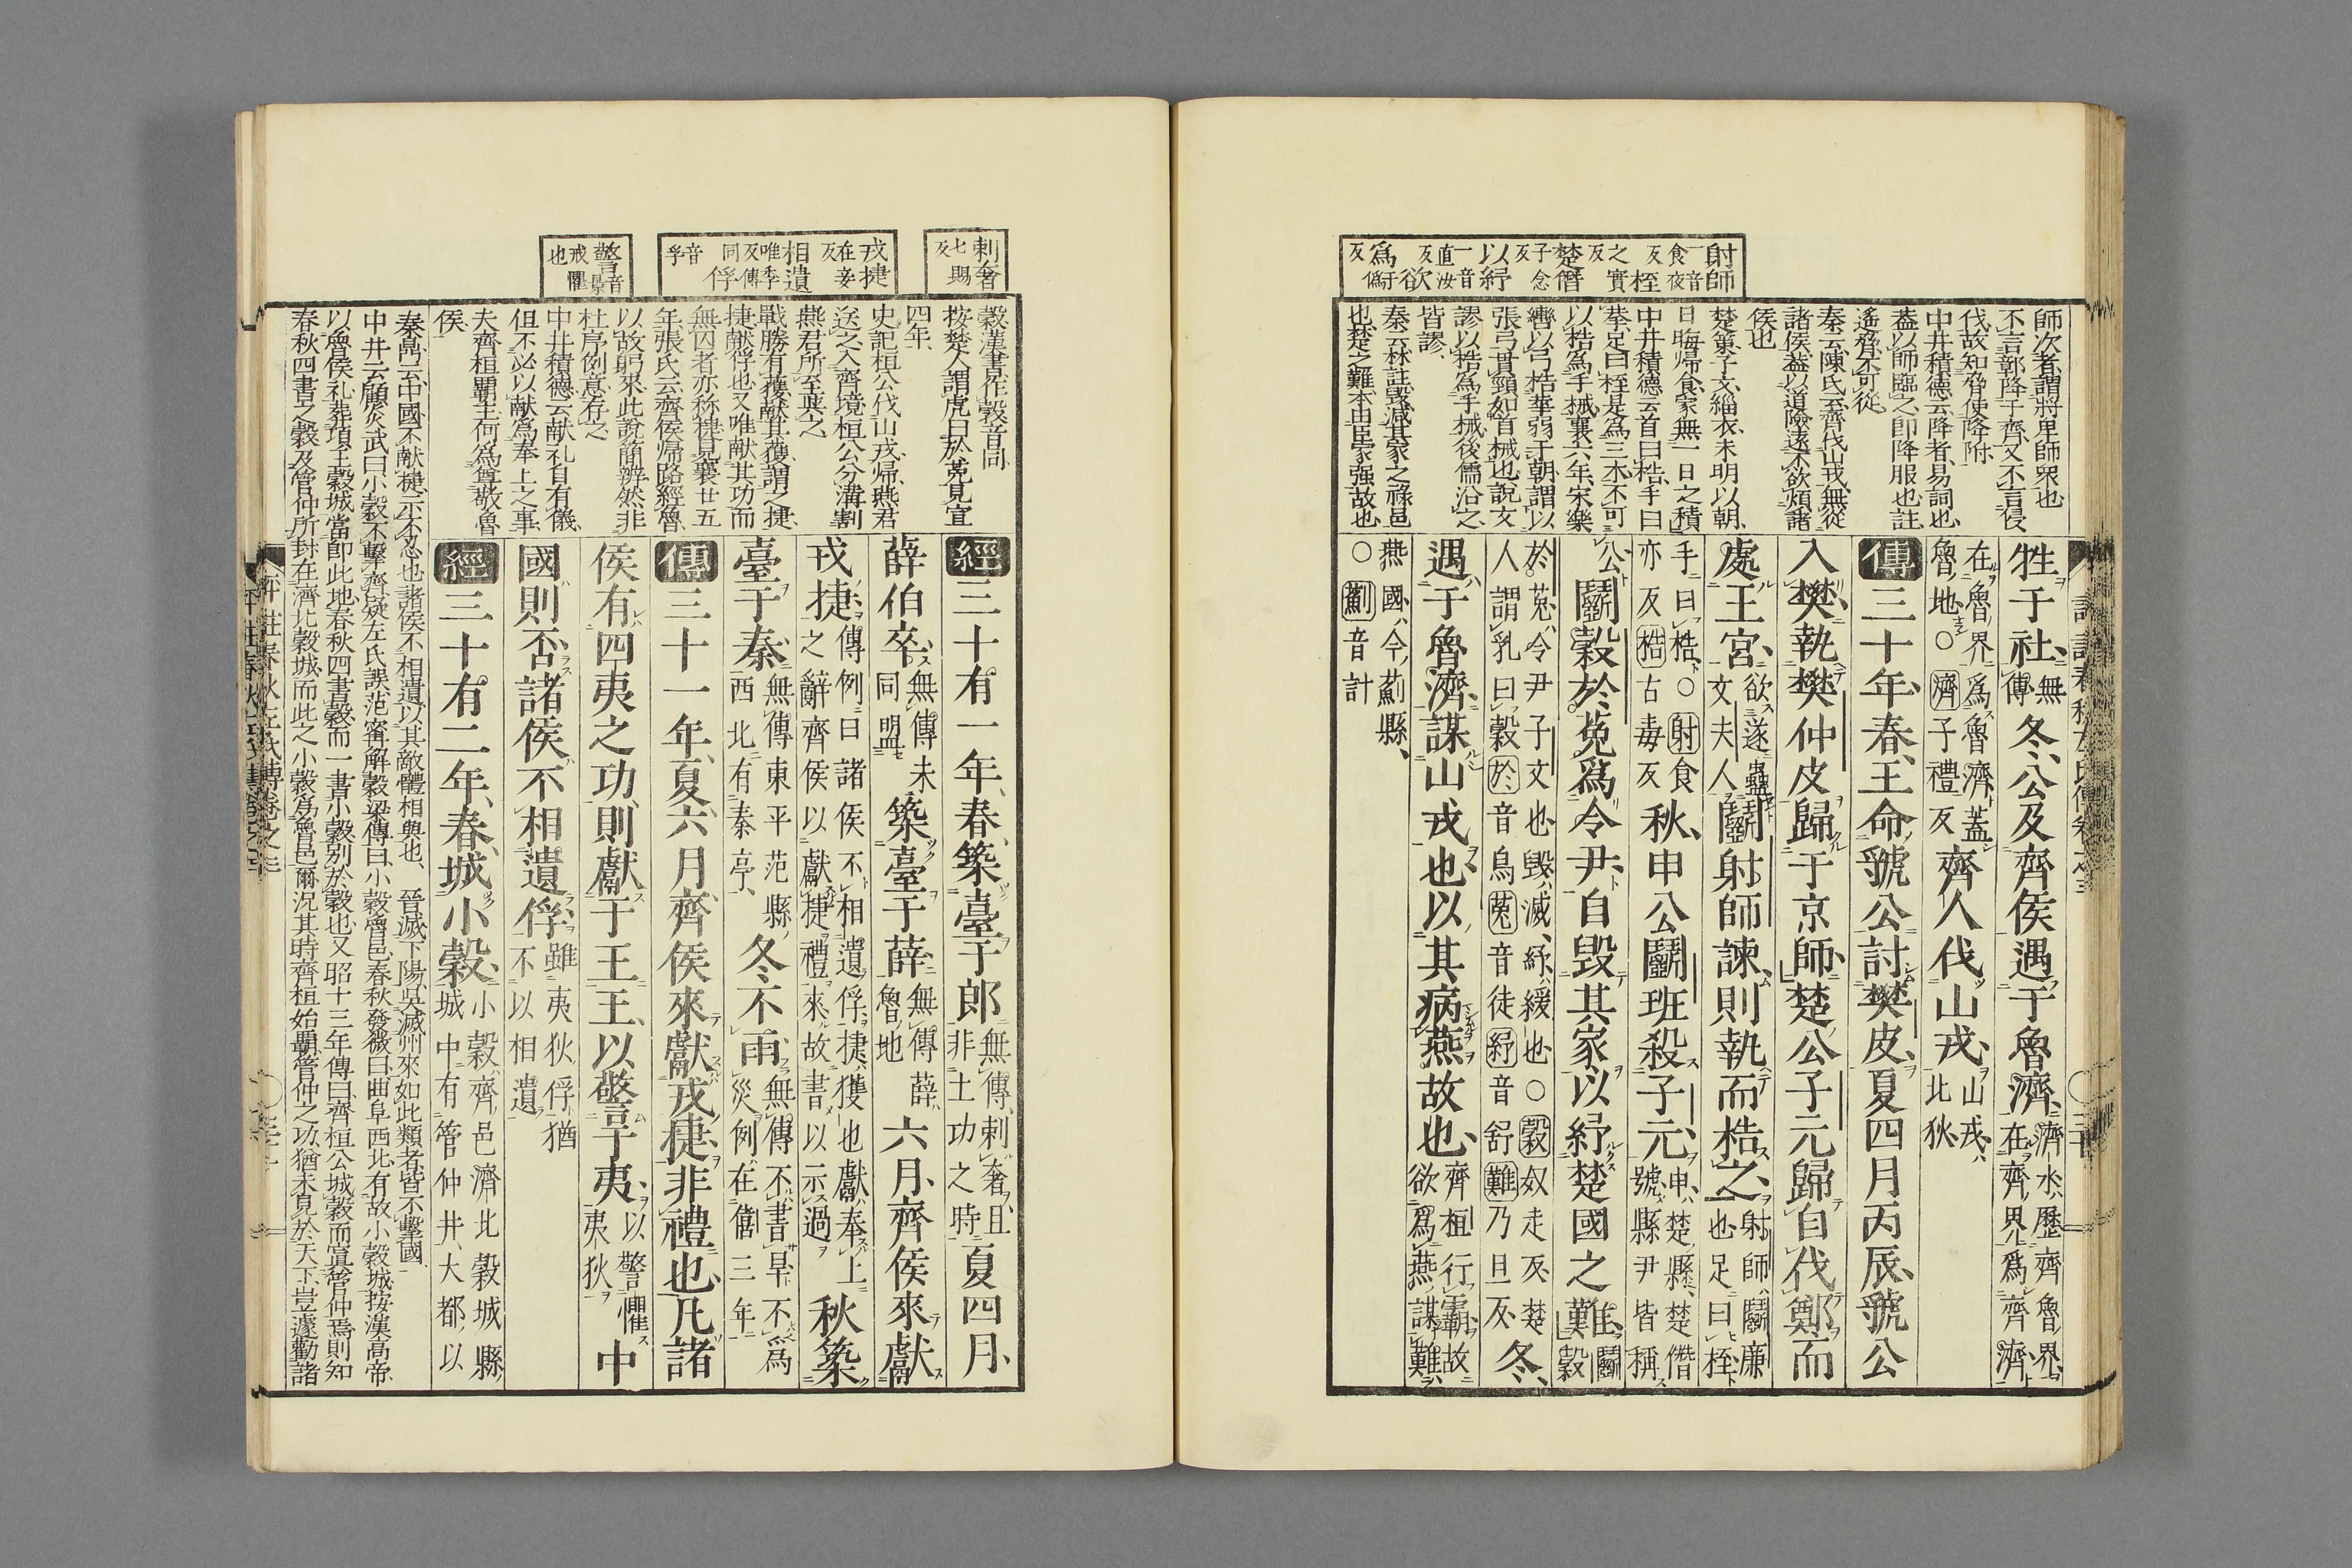 射師
一音
食夜
反
桎
之實
反
楚僭
子念
反
以紓
一音
直汝
反
欲
爲
于僞
反
師次者謂將卑師衆也
不言鄣降于齊又不言侵
伐故知脅使降附
中井積德云降者易詞也
蓋以師臨之即降服也註
遙脅不可從
秦云陳氏云齊伐山戎無從
諸侯蓋以道險遠不欲煩諸
侯也
楚策子文緇衣未明以朝
日晦歸食家無一日之積
中井積德云首曰梏手曰
拲足曰桎是為三木不可
以梏為手械襄六年宋樂
轡以弓梏華弱于朝謂以
張弓貫頸如首械也說文
謬以梏為手械後儒沿之
皆謬
秦云林註毀減其家之祿邑
也楚之難本由臣家强故也
牲于社無傳冬公及齊侯遇于魯濟濟水歷齊魯界在齊界爲齊濟
在魯界爲魯濟蓋魯地○濟子禮反齊人伐山戎山戎北狄
傳三十年春王命虢公討樊皮夏四月丙辰虢公
入樊執樊仲皮歸于京師楚公子元歸自伐鄭而
處王宮欲遂蠱文夫人鬭射師諫則執而梏之射師鬭廉也足曰桎
手曰梏○射食亦反梏古毒反秋申公鬭班殺子元申楚縣楚僭號縣尹皆稱
公鬭穀於菟爲令尹自毀其家以紓楚國之難鬭穀
於菟令尹子文也毀減紓緩也○穀奴走反楚人謂乳曰穀於音烏菟音徒紓音舒難乃旦反冬
遇于魯濟謀山戎也以其病燕故也齊桓行霸故欲爲燕謀難
燕國今薊縣○薊音計
剌奢
七賜
反
戎捷
在妾
反
相遺
唯季
反傳
同
俘
音孚
警
音景
戒懼
也
穀漢書作㝅音同
按楚人謂虎曰於菟見宣
四年
史記桓公伐山戎歸燕君
送之入齊境桓公分溝割
燕君所至與之
戰勝有獲献其獲謂之捷
捷献俘也又唯献其功而
無囚者亦称捷見襄廿五
年張氏云齊侯帰路經魯
以故躬來此說簡辨然非
杜序例意存之
中井積德云献礼自有儀
但不必以献為奉上之事
夫齊桓覇主何為尊敬魯
侯
經三十有一年春築臺于郎無傳剌奢且非土功之時夏四月
薛伯卒無傳未同盟築臺于薛無傳薛魯地六月齊侯來獻
戎捷傳例曰諸侯不相遺俘捷獲也獻奉上之辭齊侯以獻捷禮來故書以示過秋築
臺于秦無傳東平范縣西北有秦亭冬不雨無傳不書旱不爲災例在僖三年
傳三十一年夏六月齊侯來獻戎捷非禮也凡諸
侯有四夷之功則獻于王王以警于夷以警懼夷狄中
國則否諸侯不相遺俘雖夷狄俘猶不以相遺
經三十有二年春城小穀小穀齊邑濟北穀城縣城中有管仲井大都以
秦鼎云中國不献捷示不忍也諸侯不相遺以其敵體相與也 晉滅下陽吳滅州來如此類者皆不繫國
中井云顧炎武曰小穀不繫齊疑左氏誤范甯解穀梁傳曰小穀魯邑春秋發微曰曲阜西北有故小穀城按漢高帝
以魯侯礼葬項王穀城當即此地春秋四書穀而一書小穀別於穀也又昭十三年傳曰齊桓公城穀而寘管仲焉則知
春秋四書之穀及管仲所封在濟北穀城而此之小穀為魯邑爾況其時齊桓始覇管仲之功猶未見於天下豈遽勸諸